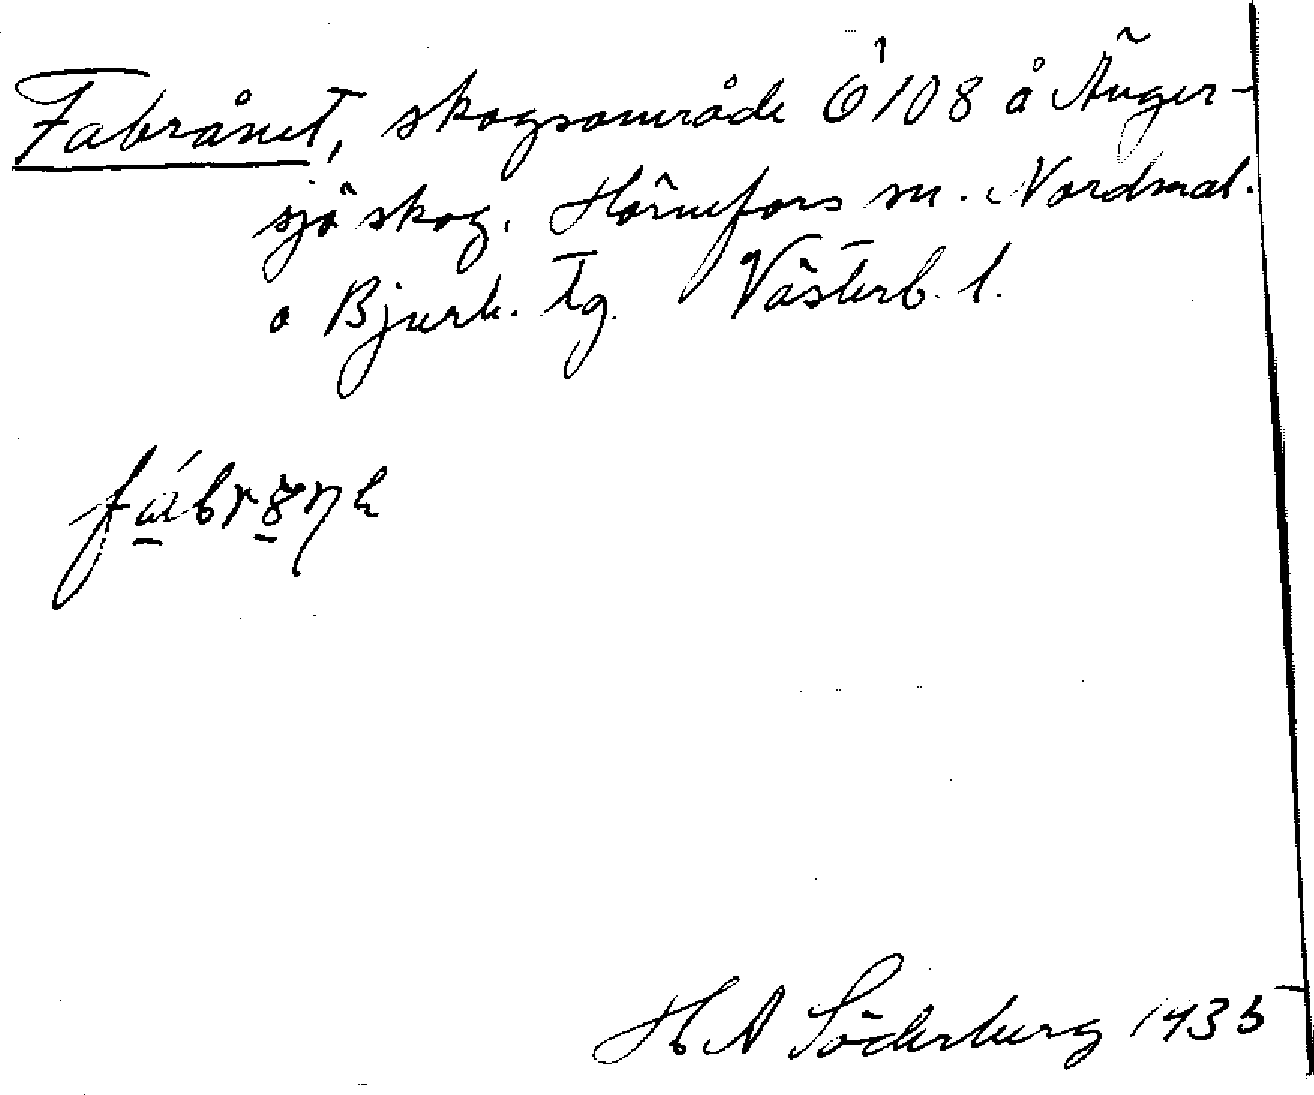 Fabrånet, skogsområde Ö 108 å Ånger-
sjö skog. Hörnefors sn. Nordmal.
o Bjurh. tg Västerb. l.
H A Söderberg 1935